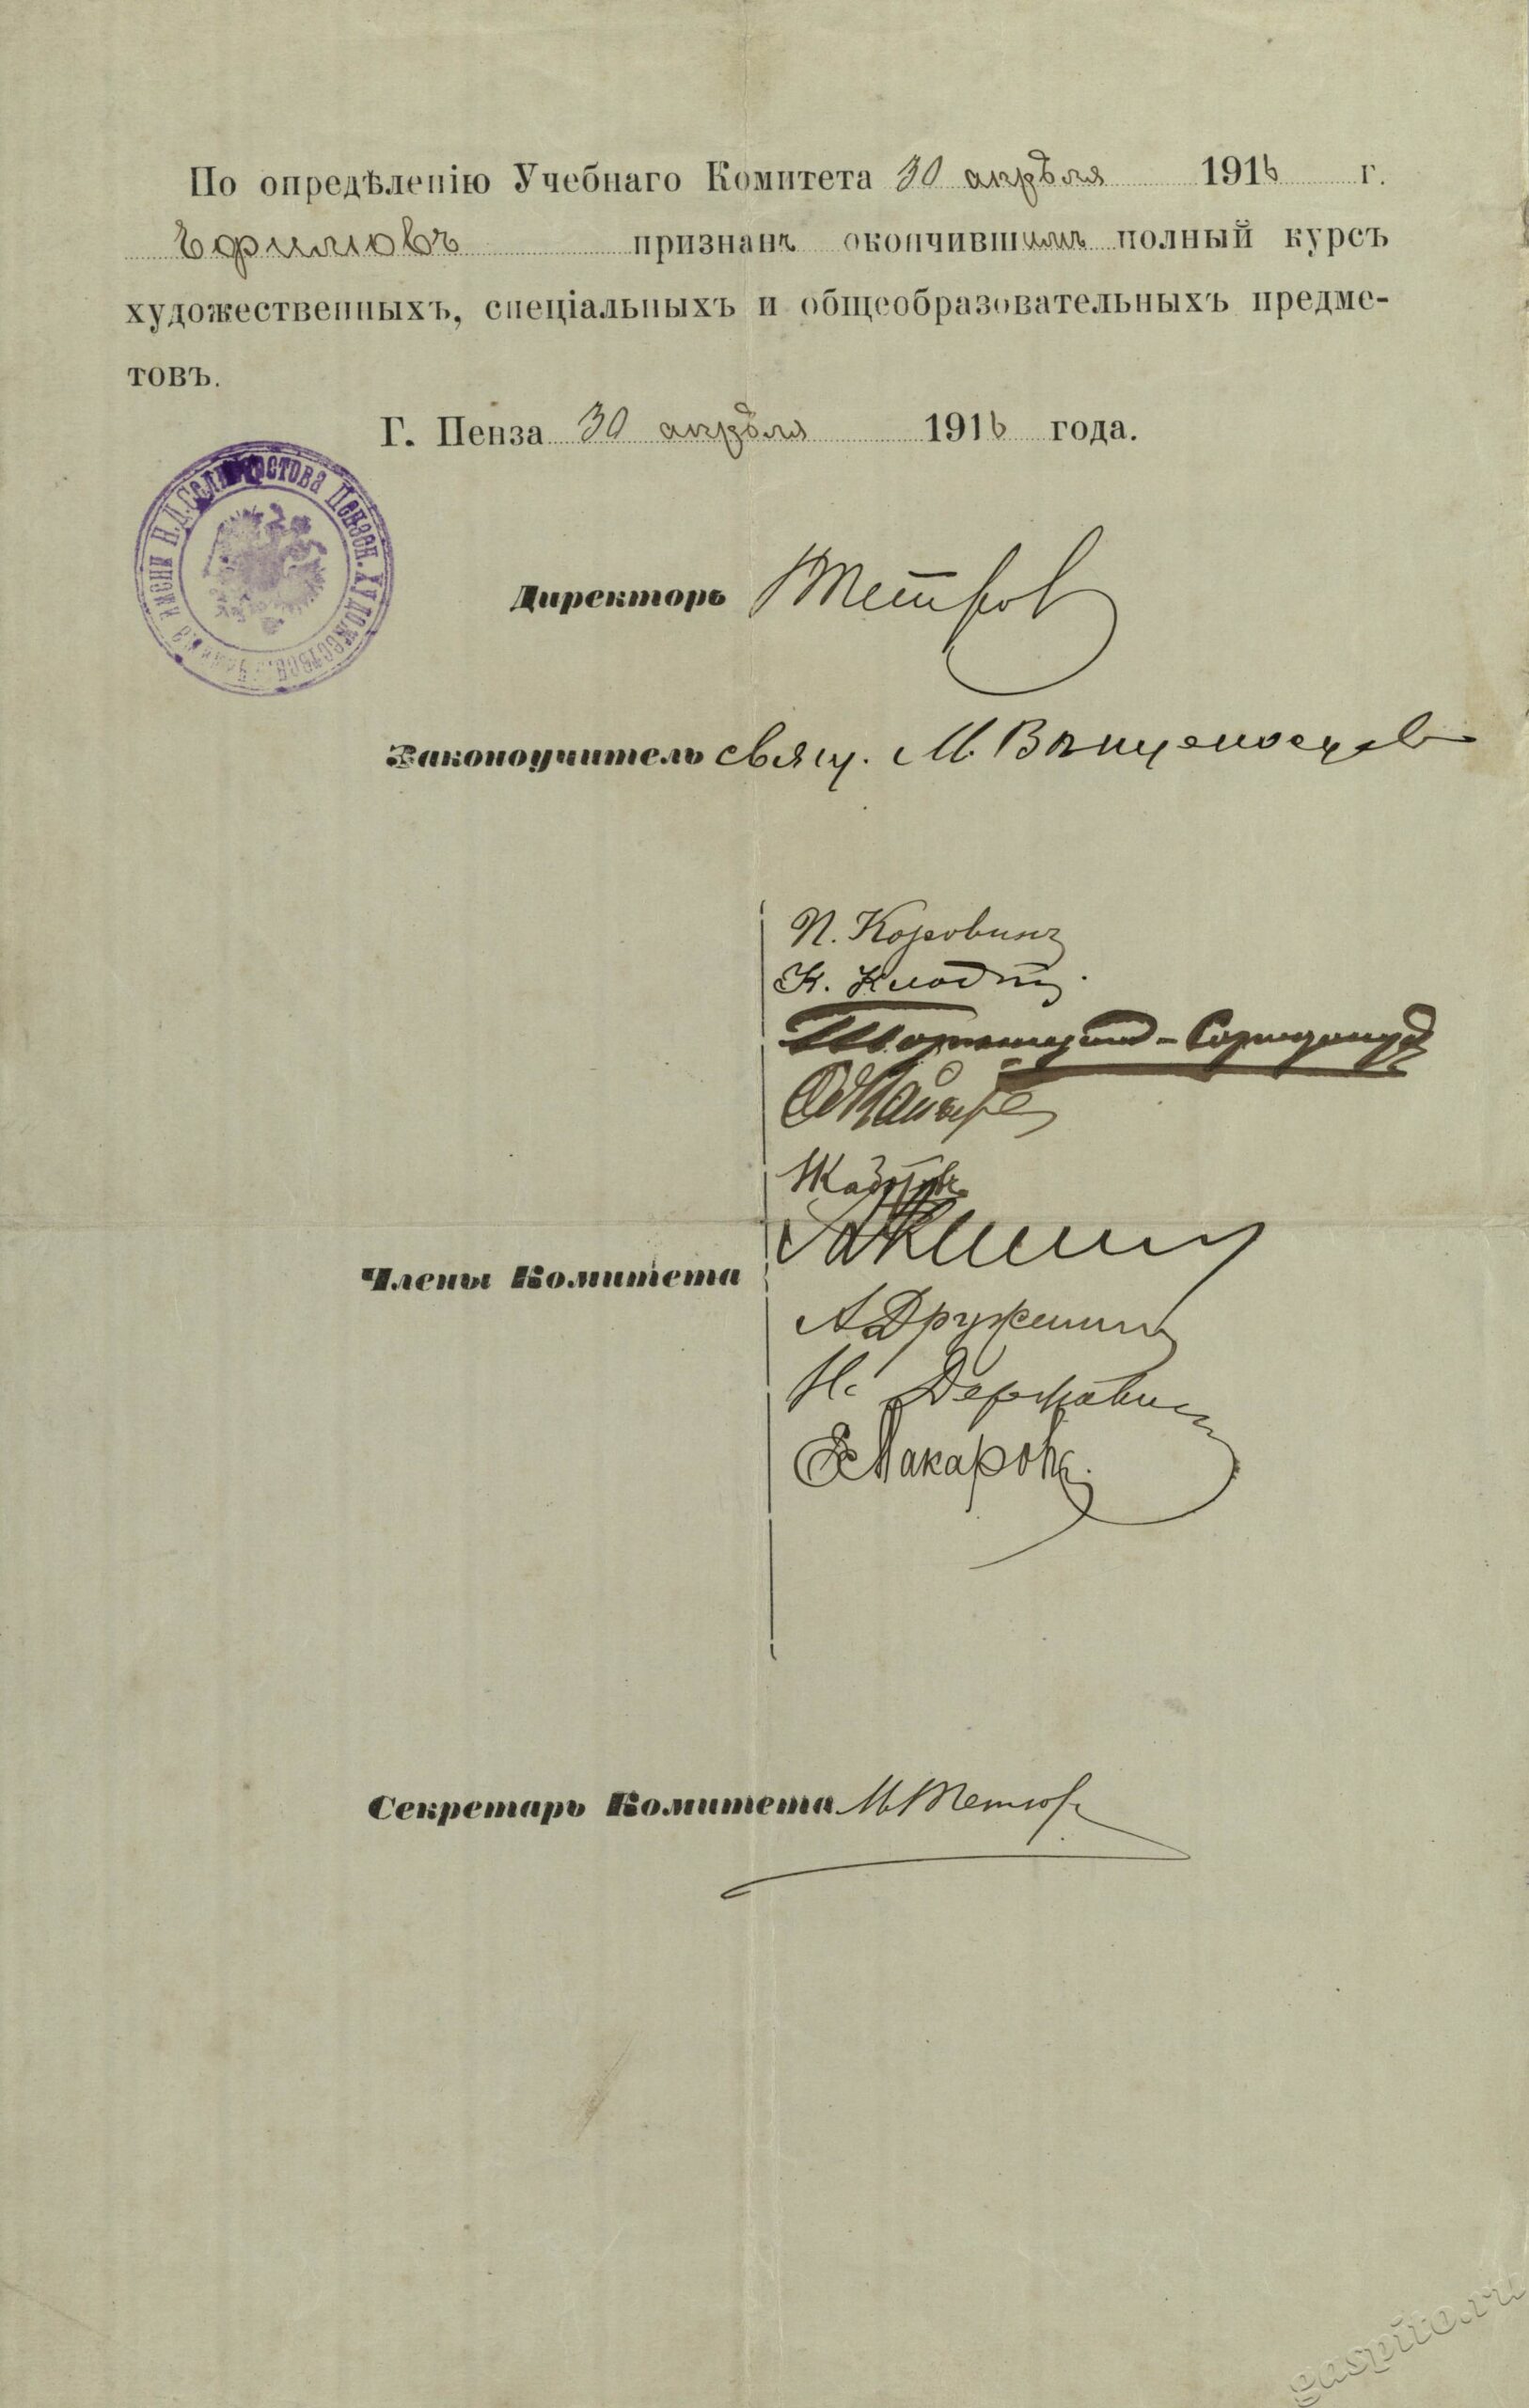 По опредѣленію Учебнаго Комитета 30 апрѣля 1916 г.
Ефимовъ признанъ окончившимъ полный курсъ
художественныхъ, спеціальныхъ и общеобразовательныхъ предме-
товъ.
Г. Пенза 30 апрѣля 1916 года.
имени Н.Д.Селиверстова Пензен. Художествен.
Директоръ Петров
Законоучитель свящ. М. Венценосцев
П. Коровинъ
К. Клодтъ
Жабловъ
Члены Комитета
А Дружинин
Н. Державин
Е Макаровъ.
Секретарь Комитета
gaspito.ru